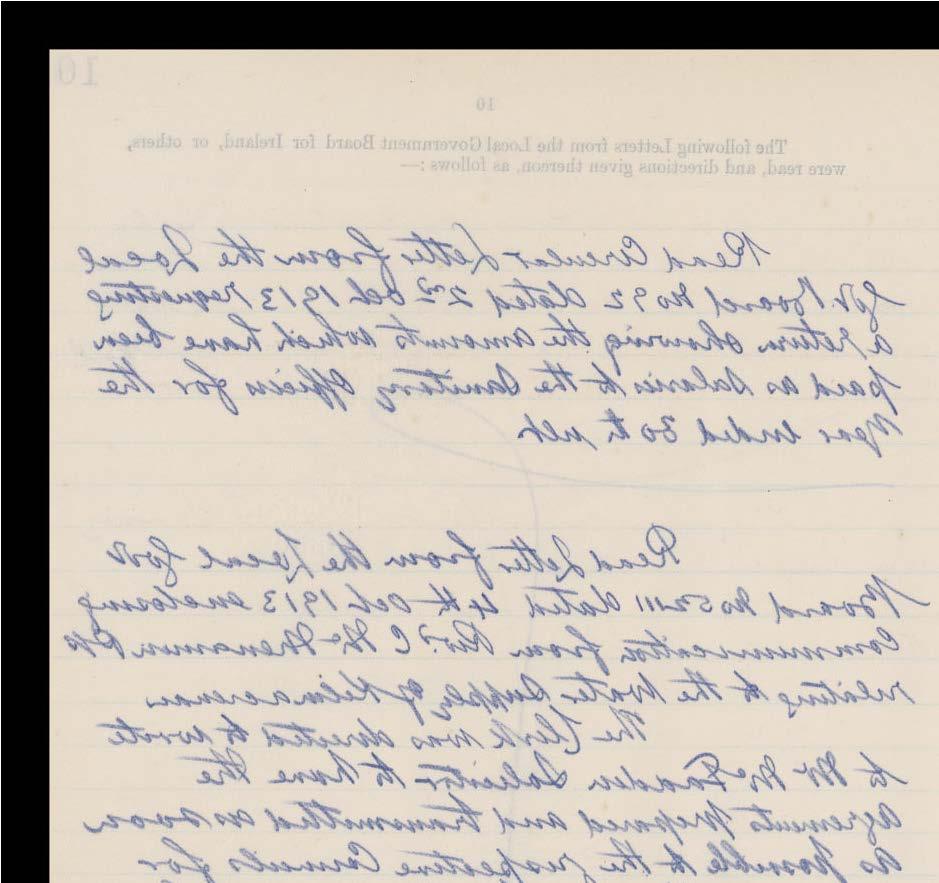 10
10
The following Letters from the Local Government Board for Ireland, or others,
were read, and directions given thereon, as follows :—
Read Circular Letter from the Local
Govt Board No 92 dated 2nd Oct 1913 requesting
a return showing the amounts which have been
paid as Salaries to the Sanitary Officers for the
Year ended 30th ult
Read Letter from the Local Govt
Board No 52111 dated 4th Oct 1913 enclosing
Communication from Revd. C McMenamin PP
relating to the Water Supply of Kilmacrenan
The Clerk was directed to wrote
to Mr McFadden Solicitor to have the
agreements prepared and transmitted as soon
as possible to the respective Councils for